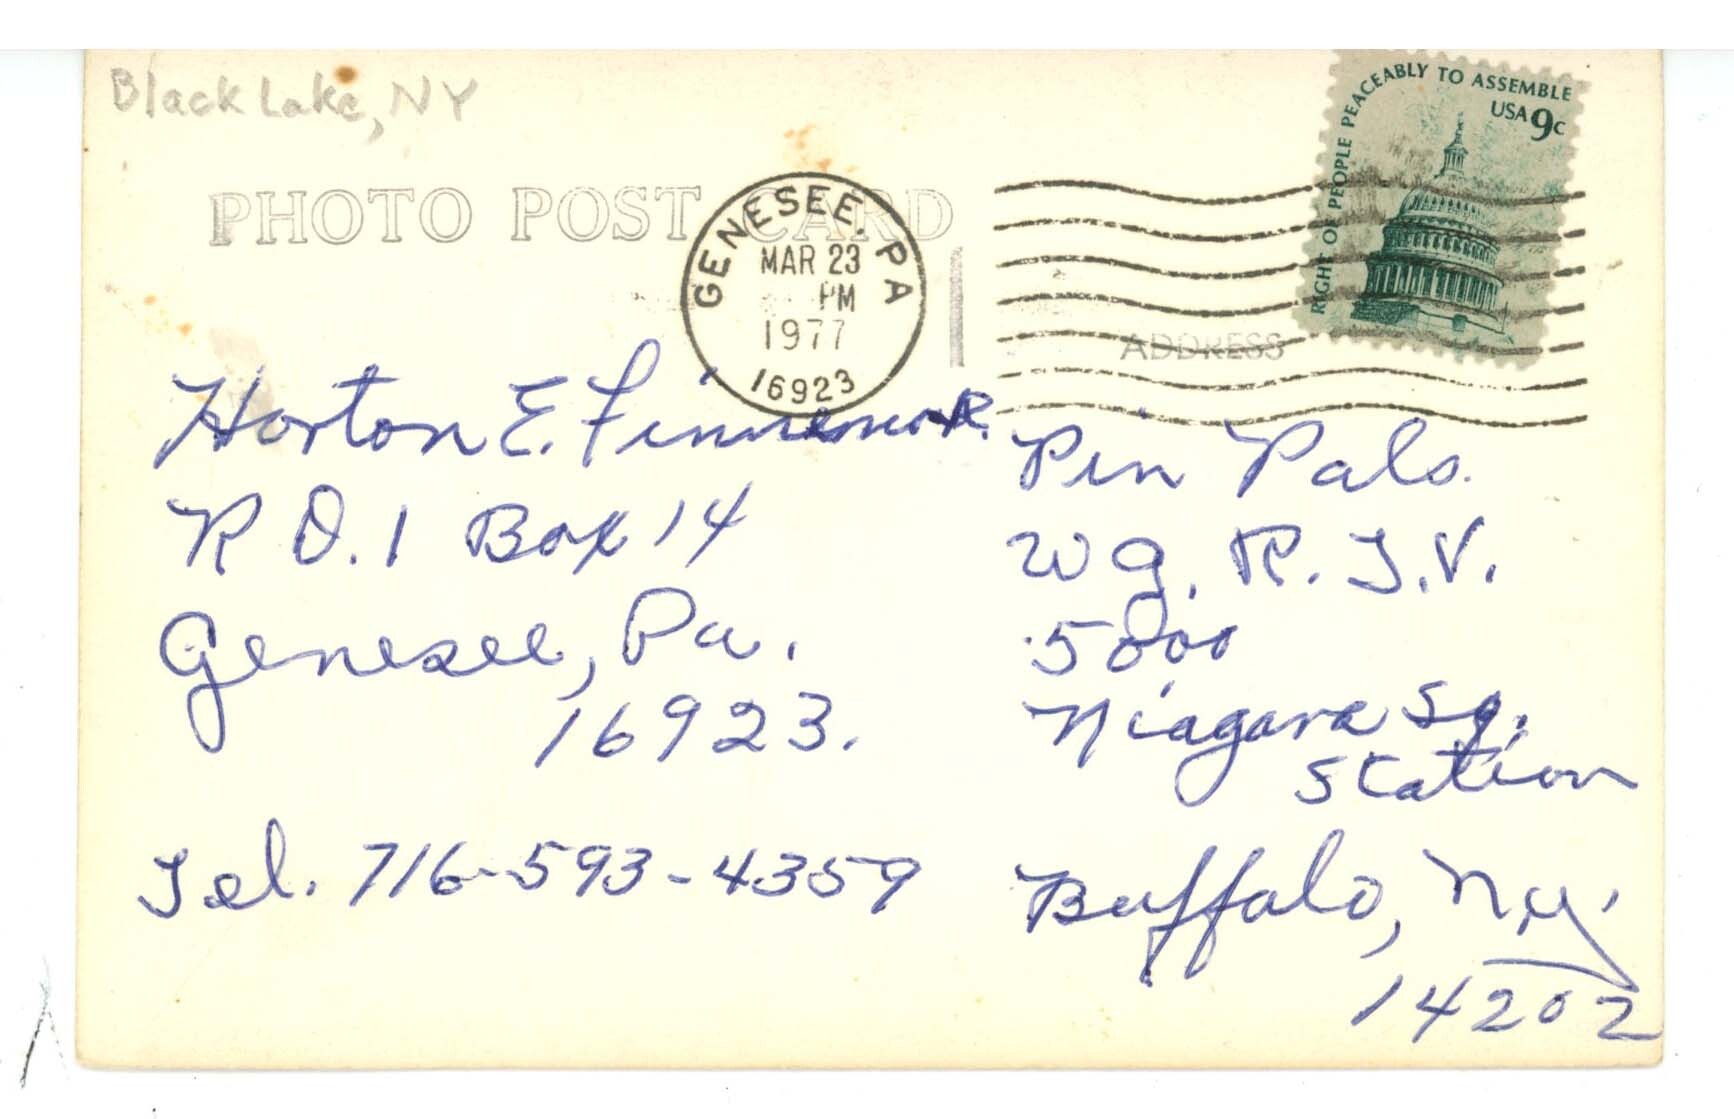 Black Lake, NY
RIGHT OF PEOPLE PEACEABLY TO ASSEMBLE
USA 9c
PHOTO POST CARD
GENESEE, PA
MAR 23
PM
1977
16923
ADDRESS
Horton E.
R D. 1 Box 14
Genesee, Pa.
16923.
Tel. 716-593-4359
Pin Pals.
W G. R. T.V.
5000
Niagara Sq.
Station
Buffalo, N.Y.
14202